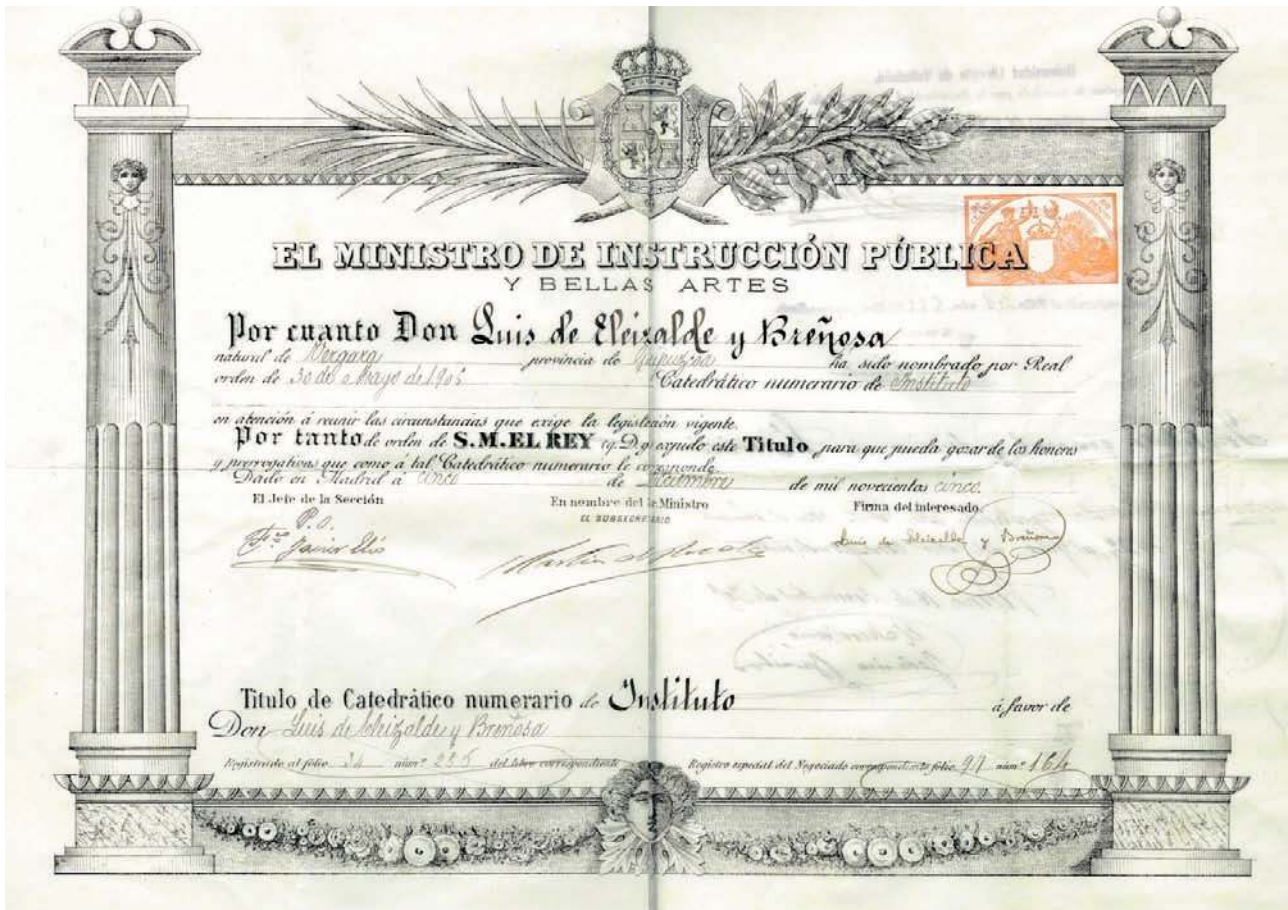 EL MINISTRO DE INSTRUCCIÓN PÚBLICA
Y BELLAS ARTES
Por cuanto Don Luis de Eleizalde y Breñosa
natural de Vergara provincia de Guipuzcoa ha sido nombrado por Real
orden de 30 de Mayo de 1905 Catedrático numerario de Instituto
en atención á reunir las circunstancias que exige la legislación vigente.
Por tanto de orden de S.M. EL REY (q.D.g.) expido este Titulo para que pueda gozar de los honores
y prerrogativas que como á tal Catedrático numerario le corresponde.
Dado en Madrid á cinco de Diciembre de mil novecientos cinco.
El Jefe de la Sección En nombre del Sr. Ministro Firma del interesado.
EL SUBSECRETARIO
P.O.
Javier Elío Luis de Eleizalde y Breñosa
Titulo de Catedrático numerario de Instituto á favor de
Don Luis de Eleizalde y Breñosa
Registrado al folio 34 núm.º 235 del libro correspondiente Registro especial del Negociado correspondiente folio 97 núm.º 164